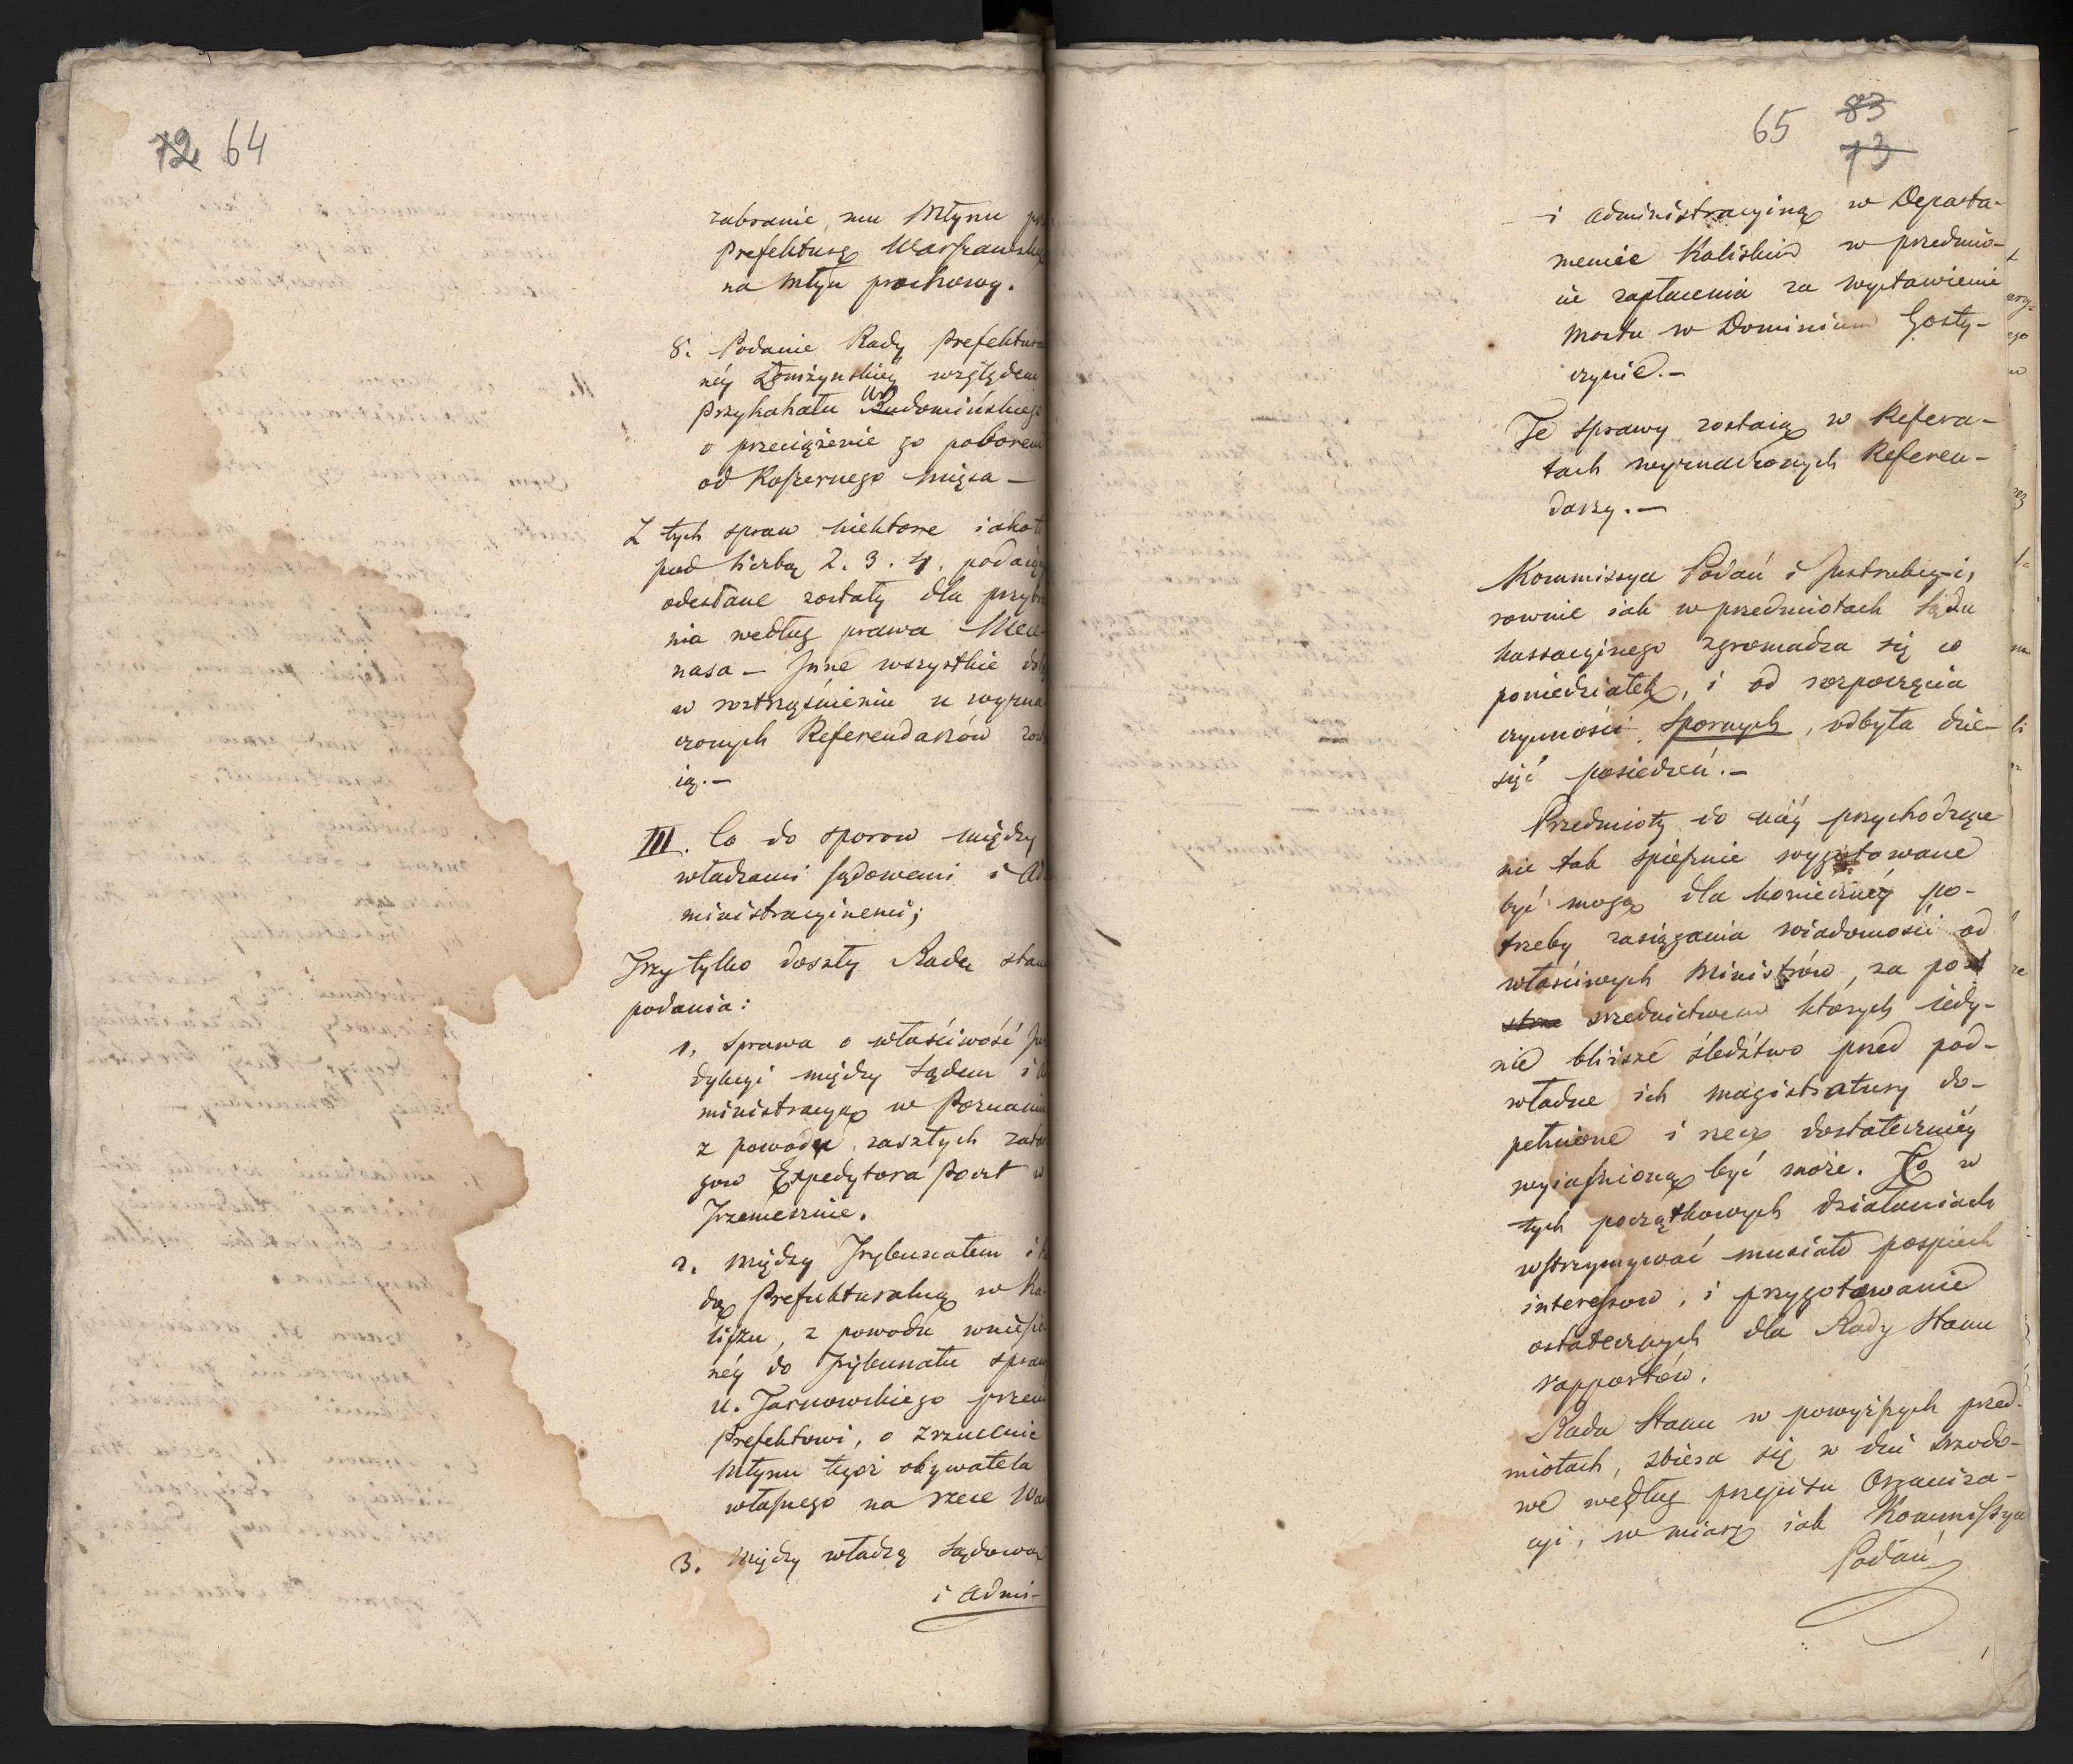 72 64
zabranie mu Młynu
Prefekturę Warszawską
na Młyn prochowy.
8. Podanie Rady Prefektural
néy Łomżyńskiéy względem
przykahału Radomińskiego
o przeciążenie go poborem
od Koszernego mięsa —
Z tych spraw niektore iako to
pod liczbą 2. 3. 4. podaią
odesłane zostały dla przybra
nia według prawa Mece-
nasa — Jnne wszystkie
w roztrząśnieniu u wyzna
czonych Referendarzów
ią. —
III. Co do sporow między
władzami sądowemi i Ad
ministracyinemi;
Trzy tylko doszły Radę stanu
podania:
1. Sprawa o właściwość Ju
dykcyi między Sądem i A
ministracyą w Poznaniu
z powodu zaszłych zatar
gow Expedytora Poczt w
Trzemesznie.
2. Między Trybunałem i Ra
dą Prefekturalną w Ka-
liszu, z powodu wniesio
néy do Trybunału sprawy
U. Tarnowskiego przeciw
Prefektowi, o zrzucenie
Młynu tegoż obywatela
własnego na rzece War
3. Między władzą Sądową
i Admi-
65 83
73
i Administracyiną w Departa-
mencie Kaliskim w przedmio-
cie zapłacenia za wystawienie
Mostu w Dominium Gosty-
czynie. —
Te sprawy zostaią w Refera-
tach wyznaczonych Referen-
darzy. —
Kommissya Podań i Jnstrukcyi,
rownie iak w przedmiotach Sądu
kassacyinego zgromadza się co
poniedziałek, i od rozpoczęcia
czynności spornych, odbyła dzie-
sięć posiedzeń. —
Przedmioty do niéy przychodzące
nie tak spiesznie wygotowane
być mogą dla konieczney po-
trzeby zasiągania wiadomości od
właściwych Ministrów, za po
srednictwem których iedy-
nie bliższe śledztwo przed pod-
władne ich magistratury do-
pełnione i rzecz dostateczniéy
wyiaśnioną być może. To w
tych początkowych działaniach
wstrzymywać musiało pospiech
interessow, i przygotowanie
ostatecznych dla Rady Stanu
rapportów.
Rada Stanu w powyższych przed-
miotach, zbiera się w dni srzodo-
we według przepisu Organiza-
cyi, w miarę iak Kommissya
Podań